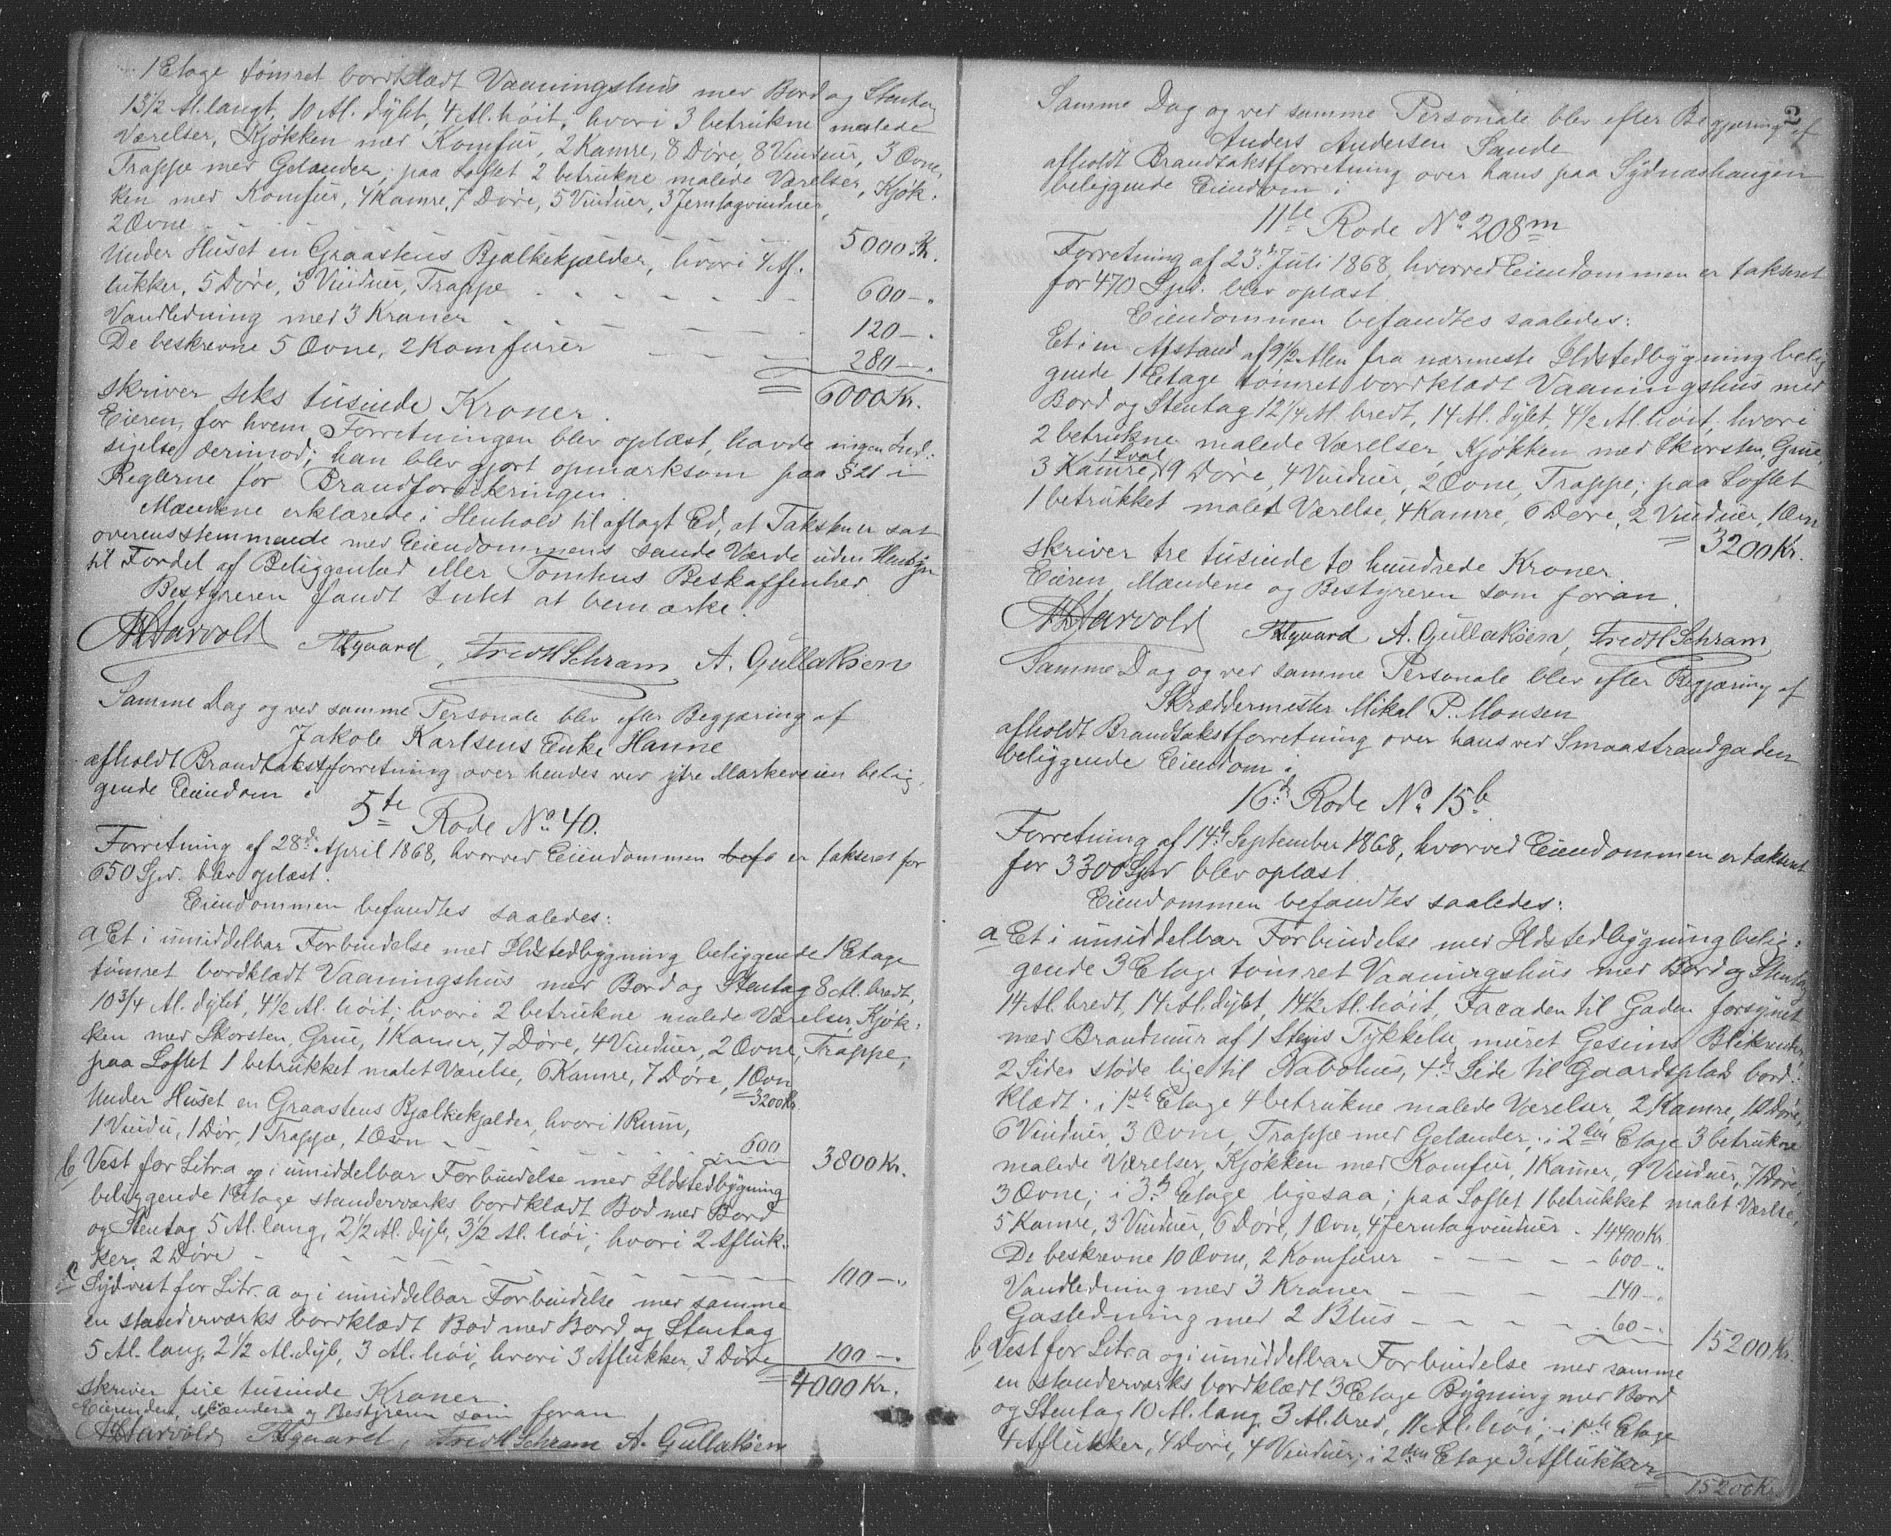 1 Etage tømret bordklædt Vaaningshus med Bord og Stentag
13½ Al. langt, 10 Al. dybt, 4 Al. höit, hvori 3 betrukne malede
Værelser, Kjøkken med Komfur, 2 Kamre, 8 Døre, 8 Vinduer, 3 Ovne,
Trappe med Gelænder; paa Loftet 2 betrukne malede Værelser, Kjøk-
ken med Komfur, 4 Kamre, 7 Døre, 5 Vinduer, 3 Jerntagvinduer,
2 Ovne 5000 Kr.
Under Huset en Graastens Bjælkekjælder, hvori 4 Af-
lukker, 5 Døre, 3 Vinduer, Trappe 600 —„
Vandledning med 3 Kraner 120 —„
De beskrevne 5 Ovne, 2 Komfurer 280 —„
skriver seks tusinde Kroner. 6000 Kr.
Eieren, for hvem Forretningen blev oplæst, havde ingen Ind-
sigelse derimod; han blev gjort opmærksom paa § 21 i
Reglerne for Brandforsikringen.
Mændene erklærede i Henhold til aflagt Ed, at Taksten er sat
overensstemmende med Eiendommens sande Værdi uden Hensyn
til Fordel af Beliggenhed eller Tomtens Beskaffenhed.
Bestyreren fandt Intet at bemærke.
AHarvold Ålgaard, Fredh Schram A. Gullaksen
Samme Dag og ved samme Personale blev efter Begjæring af
Jakob Karlsens Enke Hanne
afholdt Brandtakstforretning over hendes ved ytre Markeveien belig-
gende Eiendom i
5te Rode No. 40.
Forretning af 28de April 1868, hvorved Eiendommen befo er takseret for
650 Spd. blev oplæst.
Eiendommen befandtes saaledes:
a Et i umiddelbar Forbindelse med Ildstedbygning beliggende 1 Etage
tømret bordklædt Vaaningshus med Bord og Stentag 8 Al. bredt,
10 3/4 Al. dybt, 4½ Al. höit; hvori 2 betrukne malede Værelser, Kjøk-
ken med Skorsten, Grue, 1 Kamer, 7 Døre, 4 Vinduer, 2 Ovne, Trappe;
paa Loftet 1 betrukket malet Værelse, 6 Kamre, 7 Døre, 1 Ovn
3200 Kr.
Under Huset en Graastens Bjælkekjælder, hvori 1 Rum,
1 Vindu, 1 Dør, 1 Trappe, 1 Ovn 600 3800 Kr.
b Vest for Litr a og i umiddelbar Forbindelse med Ildstedbygning
beliggende 1 Etage standerværks bordklædt Bod med Bord
og Stentag 5 Al. lang, 2½ Al. dyb, 3½ Al. höi; hvori 2 Afluk-
ker, 2 Døre 100 —„
c Sydvest for Litr. a og i umiddelbar Forbindelse med samme
en standerværks bordklædt Bod med Bord og Stentag
5 Al. lang, 2½ Al. dyb, 3 Al. höi, hvori 3 Aflukker, 3 Døre 100 —„
skriver fire tusinde Kroner 4000 Kr.
Eierinden, Mændene og Bestyreren som foran
AHarvold Ålgaard, Fredh Schram A. Gullaksen
2
Samme Dag og ved samme Personale blev efter Begjæring af
Anders Andersen Sande
afholdt Brandtakstforretning over hans paa Sydnæshaugen
beliggende Eiendom i
11te Rode No 208m
Forretning af 23de Juli 1868, hvorved Eiendommen er takseret
for 470 Spd. blev oplæst.
Eiendommen befandtes saaledes:
Et i en Afstand af 9½ Alen fra nærmeste Ildstedbygning belig-
gende 1 Etage tømret bordklædt Vaaningshus med
Bord og Stentag 12¼ Al. bredt, 14 Al. dybt, 4½ Al. höit; hvori
2 betrukne malede Værelser, Kjøkken med Skorsten, Grue,
3 Kamre, 1 Sval, 9 Døre, 4 Vinduer, 2 Ovne, Trappe; paa Loftet
1 betrukket malet Værelse, 4 Kamre, 6 Døre, 2 Vinduer, 1 Ovn
3200 Kr.
skriver tre tusinde to hundrede Kroner.
Eieren, Mændene og Bestyreren som foran.
AHarvold Ålgaard A. Gullaksen, Fredh Schram
Samme Dag og ved samme Personale blev efter Begjæring af
Skræddermester Mikal P. Monsen
afholdt Brandtakstforretning over hans ved Smaastrandgaden
beliggende Eiendom i
16de Rode No 15b
Forretning af 14de September 1868, hvorved Eiendommen er takseret
for 3300 Spd blev oplæst.
Eiendommen befandtes saaledes:
a Et i umiddelbar Forbindelse med Ildstedbygning belig-
gende 3 Etage tømret Vaaningshus med Bord og Stentag
14 Al. bredt, 14 Al. dybt, 14½ Al. höit, Facaden til Gaden forsynet
med Brandmur af 1 Stens Tykkelse, muret Gesims, Blikrender,
2 Sider støde lige til Nabohus, 4de Side til Gaardsplads bord-
klædt; i 1ste Etage 4 betrukne malede Værelser, 2 Kamre, 10 Døre,
6 Vinduer, 3 Ovne, Trappe med Gelænder; i 2den Etage 3 betrukne
malede Værelser, Kjøkken med Komfur, 1 Kamer, 9 Vinduer, 7 Døre,
3 Ovne; i 3de Etage ligesaa; paa Loftet 1 betrukket malet Værelse,
5 Kamre, 3 Vinduer, 6 Døre, 1 Ovn, 4 Jerntagvinduer 14400 Kr.
De beskrevne 10 Ovne, 2 Komfurer 600 —„
Vandledning med 3 Kraner 140 —„
Gasledning med 2 Blus 60 —„ 15200 Kr.
b Vest for Litr a og i umiddelbar Forbindelse med samme
en standerværks bordklædt 3 Etage Bygning med Bord
og Stentag 10 Al. lang, 3 Al. bred, 11 Al. höi; i 1ste Etage
4 Aflukker, 4 Døre, 4 Vinduer; i 2den Etage 3 Aflukker
15200 Kr.